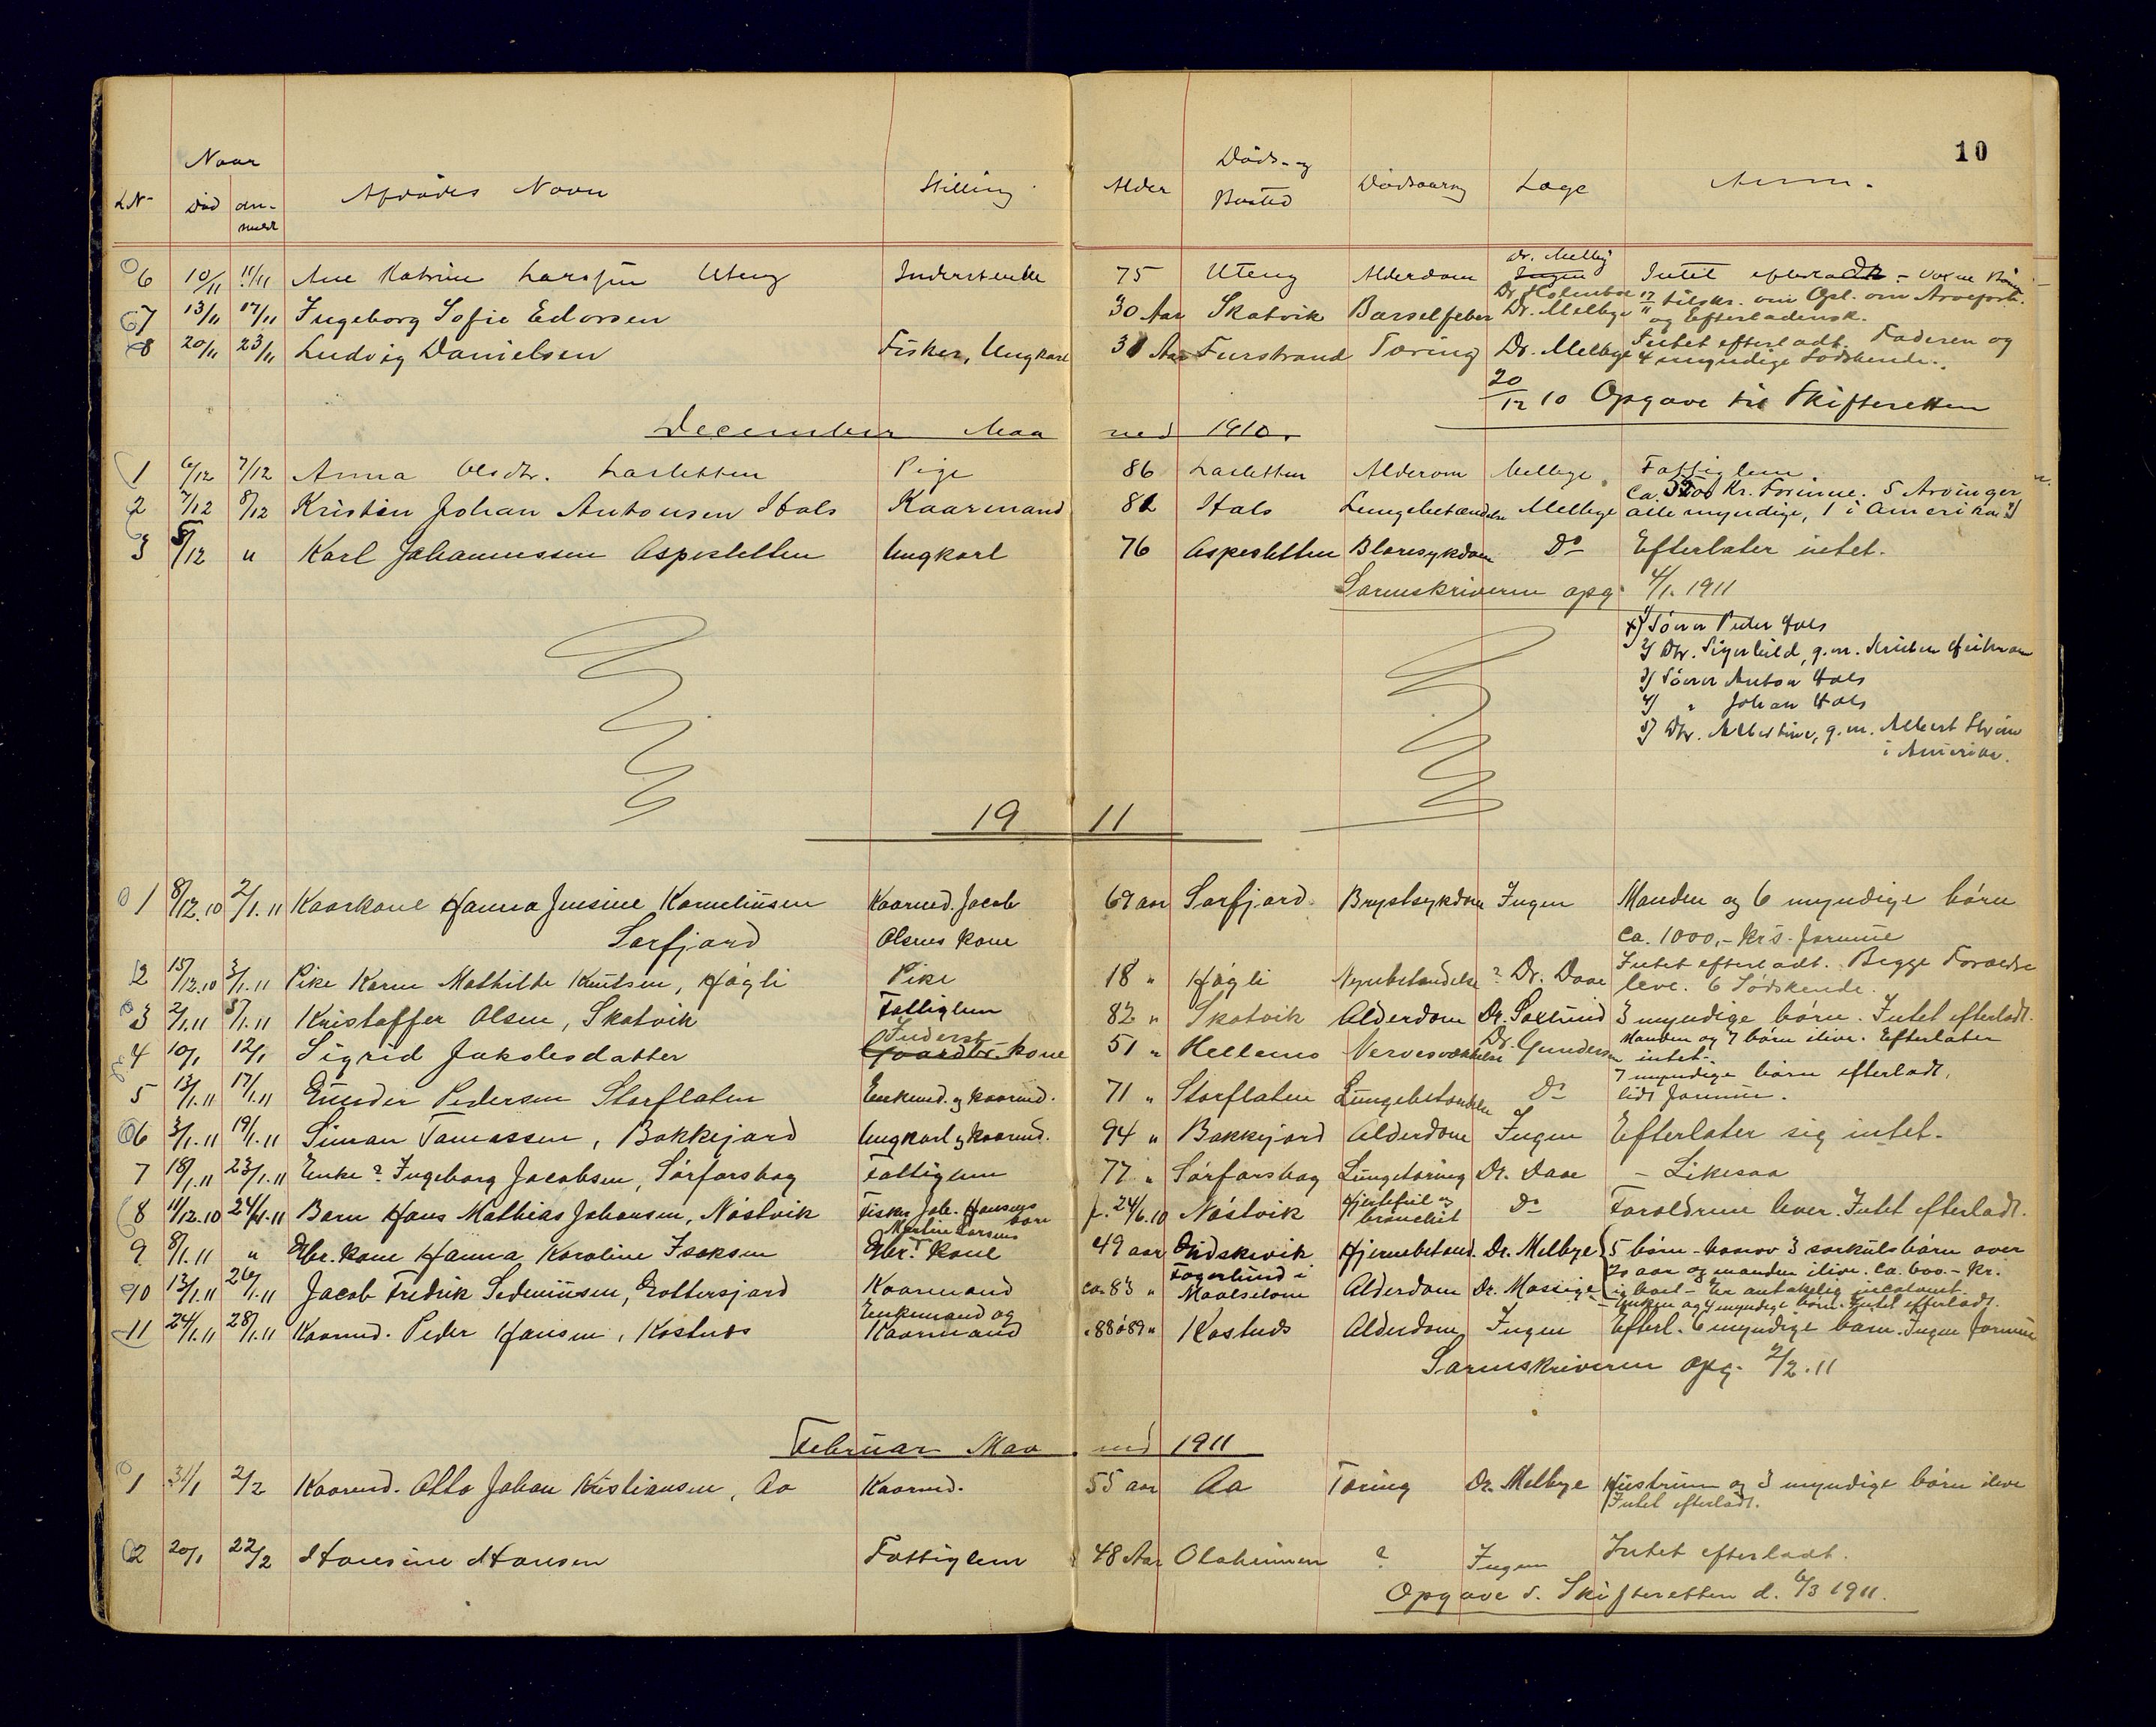 10
Naar
LN- Död an- Afdödes Navn Stilling Alder Döds- og Dödsaarsag Læge Anm.
meldt Bosted
6 10/11 11/11 Ane Katrine Larssen Uteng Inderstenke 75 Uteng Alderdom Dr. Melbye Ingen Intet efterladt - voxne Börn
7 13/11 17/11 Ingeborg Sofie Edvorsen 30 Aar Skatvik Barselfeber Dr. Holmboe Dr. Melbye 17/11 tilskr. om Opl. om Arveforh. og Efterladensk.
8 20/11 23/11 Ludvig Danielsen Fisker, Ungkarl 31 Aar Furstrand Tæring Dr. Melbye Intet efterladt. Faderen og 4 myndige Södskende.
20/12 10 Opgave til Skifteretten
December Maaned 1910.
1 6/12 7/12 Anna Olsdtr. Larsletten Pige 86 Larsletten Alderdom Melbye Fattiglem
2 7/12 8/12 Kristen Johan Antonsen Hals Kaarmand 81 Hals Lungebetændelse Melbye Ca. Kr. Formue. 5 Arvinger alle myndige, 1 i Amerika x)
3 5/12 " Karl Johannessen Aspesletten Ungkarl 76 Aspesletten Blæresykdom Do Efterlater intet.
Sorenskriveren opg. 4/1. 1911
x) 1) Sönn Peder Hals
2) Dtr. Sigerhild, g.m.
3) Sönn Anton Hals
4) " Johan Hals
5) Dtr. Albertine, g.m. Albert Ström
i Amerika.
1911
1 8/12.10 2/1.11 Kaarkone Hanna Jensine Korneliusen Kaarmd. Jacob 69 aar Sørfjord Brystsykdom Ingen Manden og 6 myndige børn
Sørfjord Olsens kone Ca. 1000,- kr's. formue
2 15/12.10 3/1.11 Pike Karen Mathilde Knutsen, Høgli Pike 18 " Høgli Nyrebetændelse? Dr. Daae Intet efterladt. Begge Forældre leve. 6 Södskende.
3 2/1.11 5/1.11 Kristoffer Olsen, Skatvik Fattiglem 82 " Skatvik Alderdom Dr. Soxlund 3 myndige børn. Intet efterladt.
4 10/1 12/1 Sigrid Jakobsdatter Inderst Gaardbr. kone 51 " Hellemo Nervesvækkelse Dr. Gundersen Manden og 7 børn ilive. Efterlater intet.
5 13/1.11 17/1.11 Gunder Pedersen Storflaten Enkemd. og kaarmd. 71 " Storflaten Lungebetændelse Do 7 myndige børn efterladt, lidt formue.
6 3/1.11 19/1.11 Simon Tomassen, Bakkejord Ungkarl og kaarmd. 94 " Bakkejord Alderdom Ingen Efterlater sig intet.
7 18/1.11 23/1.11 Enke? Ingeborg Jacobsen, Sørforsbag Fattiglem 77 " Sørforsbag Lungetæring Dr. Daae - Likesaa
8 11/12.10 24/1.11 Barn Hans Mathias Johansen, Nöstvik Fisker Joh. Hansens barn f. 24/6.10 Nöstvik Hjertefeil og bronchit Do Forældrene lever. Intet efterladt.
9 8/1.11 " Gbr. kone Hanna Karoline Isaksen Martin Larsens Gbr. kone 49 aar Gudskivik Hjernebetænd. Dr. Melbye 5 børn - hvorav 3 særkulsbørn over 20 aar og manden ilive. Ca. 600.- kr.
10 13/1.11 26/1.11 Jacob Fredrik Sedeniusen, Goltersjord Kaarmand ca. 83 " Fagerlund i Maalselven Alderdom Dr. Mosiige Enken og 4 myndige børn. Intet efterladt.
11 24/1.11 28/1.11 Kaarmd. Peder Hansen, Kostnæs Enkemand og Kaarmand 88 à 89 " Kostnæs Alderdom Ingen Efterl. 6 myndige barn. Ingen formue
Sorenskriveren opg. 2/2.11
Februar Maaned 1911
1 31/1 2/2 Kaarmd. Otto Johan Kristiansen, Aa Kaarmd. 55 aar Aa Tæring Dr. Melbye Hustruen og 3 myndige børn ilive
Intet efterladt.
2 20/1 22/2 Hansine Hansen Fattiglem 48 Aar Olaheimen ? Ingen Intet efterladt.
Opgave s. Skifteretten d. 6/3 1911.